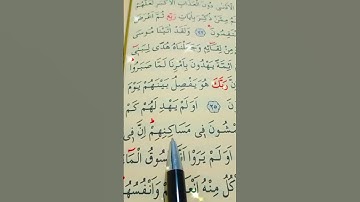 الْاَدْنٰى دُونَ الْعَذَابِ الْاَكْبَرِ لَعَلَّهُمْ
ذُكِّرَ بِاٰيَاتِ رَبِّهٖ ثُمَّ اَعْرَضَ
﴿٢٢﴾ وَلَقَدْ اٰتَيْنَا مُوسَى
مِنْ لِقَٓائِهٖ وَجَعَلْنَاهُ هُدًى لِبَنٖٓى
اَئِمَّةً يَهْدُونَ بِاَمْرِنَا لَمَّا صَبَرُوا
رَبَّكَ هُوَ يَفْصِلُ بَيْنَهُمْ يَوْمَ
﴿٢٥﴾ اَوَلَمْ يَهْدِ لَهُمْ كَمْ
يَمْشُونَ فٖى مَسَاكِنِهِمْ اِنَّ فٖى
اَوَلَمْ يَرَوْا اَنَّا نَسُوقُ الْمَٓاءَ
تَأْكُلُ مِنْهُ اَنْعَامُهُمْ وَاَنْفُسُهُمْ